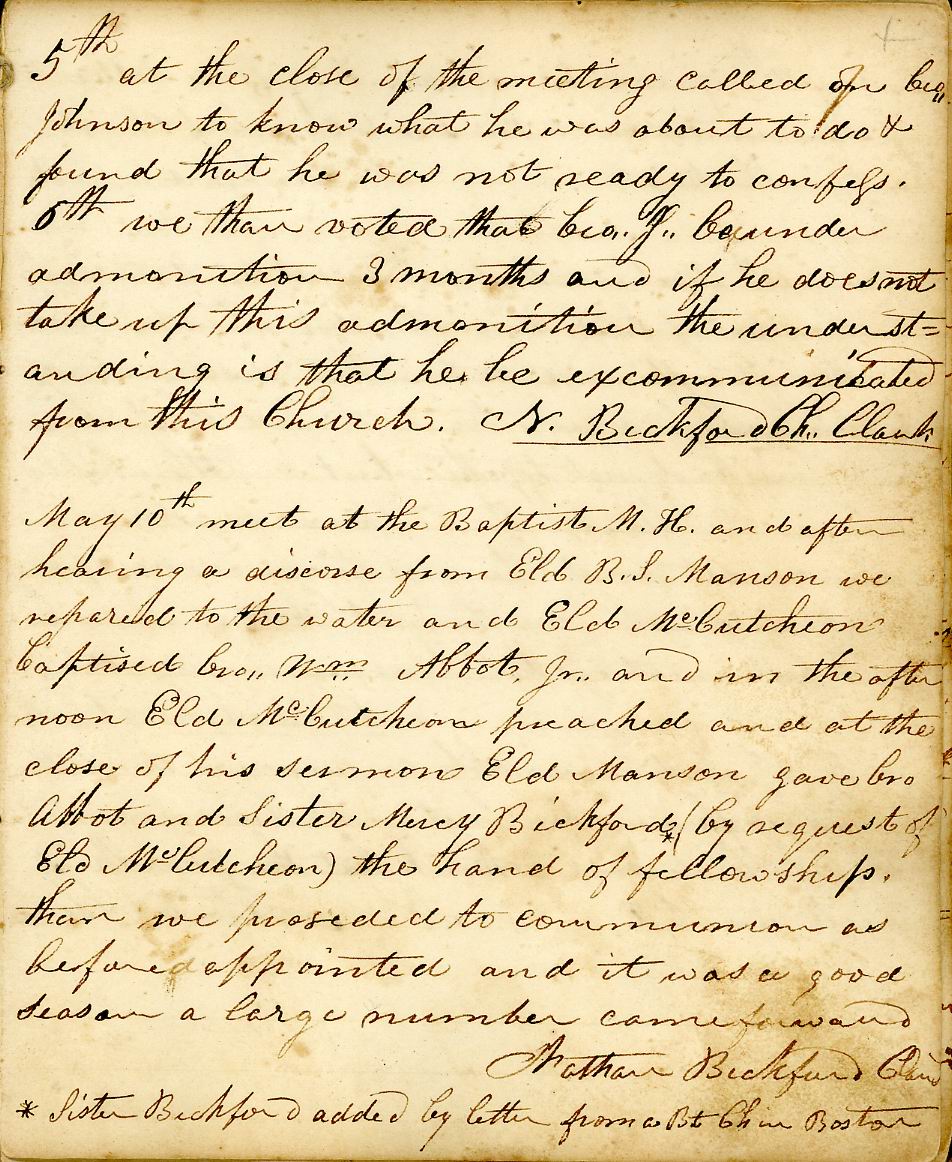 5th at the close of the meeting called on bro,,
Johnson to know what he was about to do &
found that he was not ready to confess.
6th we than voted that bro,. J,. be under
admonition 3 months and if he does not
take up this admonition the underst=
anding is that he be excommunicated
from this Church. N. Bickford Ch,. Clark
May 10th meet at the Baptist M. H. and after
hearing a discorse from Eld B. S. Manson we
repared to the water and Eld McCutcheon
baptised bro,. Wm Abbot, Jr,. and in the after
noon Eld McCutcheon preached and at the
close of his sermon Eld Manson gave bro
Abbot and Sister Mercy Bickford * (by request of
Eld McCutcheon) the hand of fellowship.
than we proseded to communion as
before appointed and it was a good
season a large number came forward
Nathan Bickford
* Sister Bickford added by letter from a Bt Ch in Boston